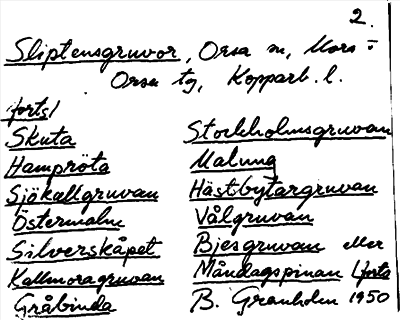 2.
Slipstensgruvor, Orsa sn, Mora o
Orsa tg, Kopparb. l.
forts/
Skuta Stockholmsgruvan
Hampröta Malung
Sjökallgruvan Hästbytargruvan
Östermalm Vålgruvan
Silverskåpet Bjesgruvan eller
Kallmoragruvan Måndagspinan (forts
Gråbinda B. Granholm 1950